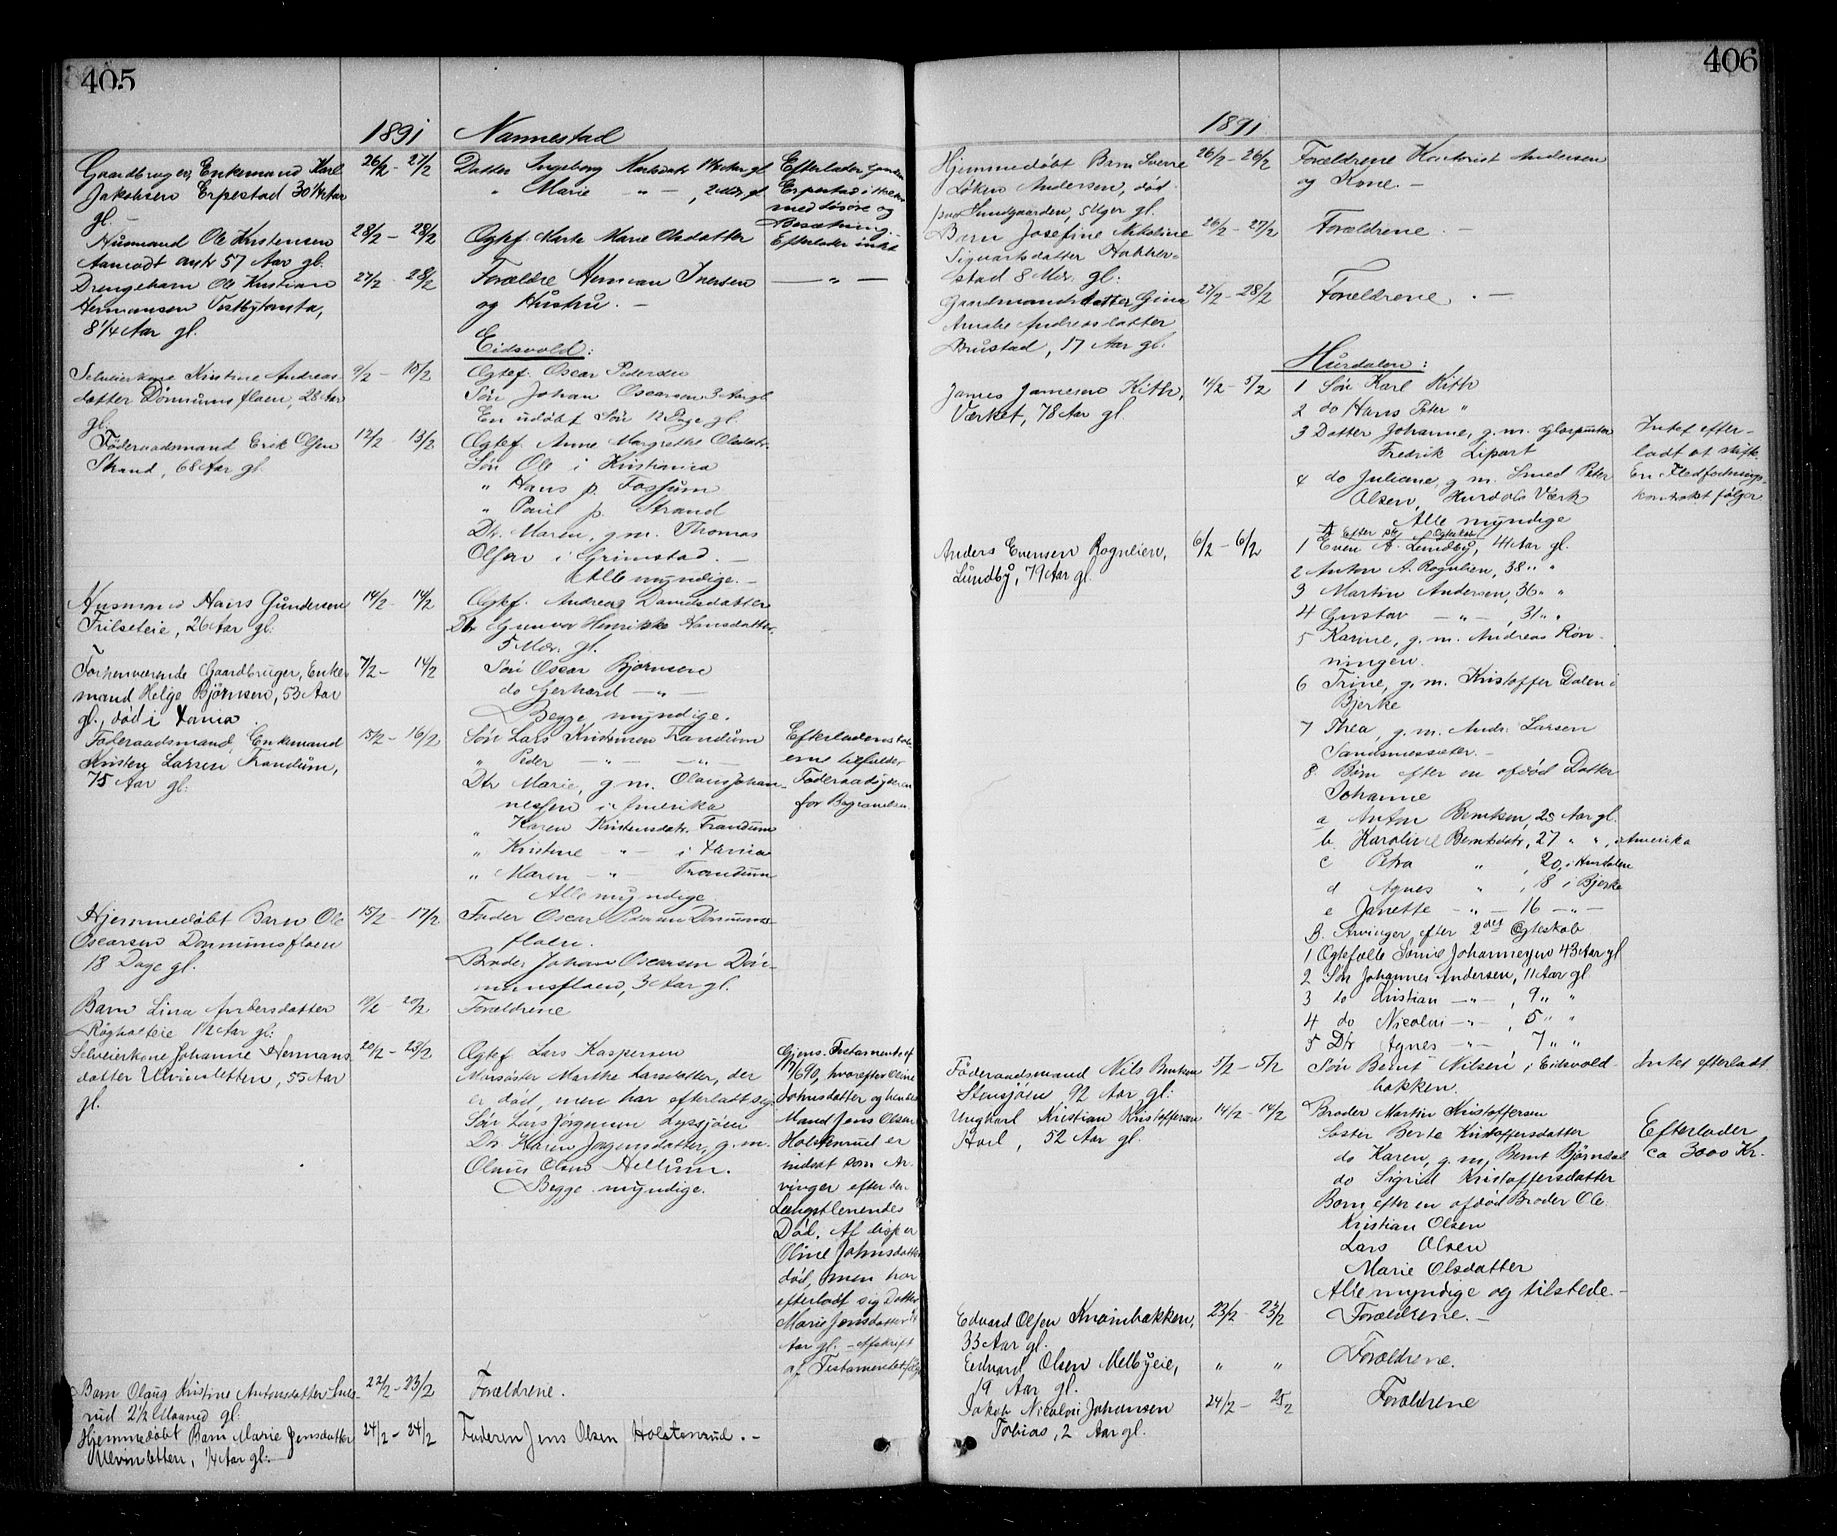 405
1891 Nannestad
Gaardbruger, Enkemand Karl 26/2 - 27/2 Datter Ingeborg Karlsdatr 1¼ Aar gl. Efterlader Gaarden
Jakobsen Erpestad 30¼ Aar " Marie — " — , 2 Mdr. gl. Erpestad i
gl. — med løsøre og
Besætning. —
Husmand Ole Kristensen 28/2 - 28/2 Ægtef. Marte Marie Olsdatter Efterlader intet
57 Aar gl.
Drengebarn Ole Kristian 27/2 - 28/2 Forældre Herman Iversen — " —
Hermansen og Hustru. —
8¼ Aar gl.
Eidsvold:
Selveierkone Kristine Andreas- 9/2 - 10/2 Ægtef. Oscar Pedersen
datter Dønnumsflaen, 28 Aar Søn Johan Oscarsen 3 Aar gl.
gl. En udøbt Søn 12 Dage gl.
Føderaadsmand Erik Olsen 12/2 - 13/2 Ægtef. Anne Margrethe Olsdatr.
Strand, 68 Aar gl. Søn Ole i Kristiania
" Hans p. Fossum
" Paul p. Strand
Dtr. Maren, g.m. Thomas
Olsen i Grimstad. —
Alle myndige. —
Husmand Hans Gundersen 14/2 - 14/2 Ægtef. Andrea Davidsdatter
Trilseteie, 26 Aar gl. Dtr Gunvor Henrikke Hansdatter,
5 Mdr. gl.
Forhenværende Gaardbruger, Enke- 7/2 - 14/2 Søn Oscar Bjørnsen
mand Helge Bjørnsen, 53 Aar do Gerhard — " —
gl., død i Vania Begge myndige.
Føderaadsmand, Enkemand 15/2 - 16/2 Søn Lars Kristensen Trandum
Kristen Larsen Trandum, " Peder — " — — " —
75 Aar gl. Dtr Marie, g.m. Olaus Johan- Føderaadsyderen
nessen i Amerika for Begravelsen
" Karen Kristensdatr. Trandum
" Kristine — " — i Vania
" Maren — " — Trandum
Alle myndige.
Hjemmedøbt Barn Ole 15/2 - 17/2 Fader Oscar Pedersen Dønnums-
Oscarsen Dønnumsflaen flaen.
18 Dage gl. Broder Johan Oscarsen Døn-
numsflaen, 3 Aar gl.
Barn Lina 19/2 20/2 Forældrene
Røgholteie 1½ Aar gl.
Selveierkone Johanne Hermans- 20/2 - 23/2 Ægtef. Lars Kaspersen Gjens. Testamente af
datter Ulvinsletten, 55 Aar Morsøster Marthe Larsdatter, der 17/6 90, hvorefter Oline
gl. er død, men har efterladt sig Johnsdatter og hendes
Søn Lars Jørgensen Mand Jens Olsen
Dtr. Karen Jørgensdatter, g.m. Holstenrud er
Olaus Olsen Hellum. indsat som Ar-
Begge myndige. vinger efter den
Længstlevendes
Død. Af disse er
Oline Johnsdatter
død, men har
efterladt sig Datter
Marie Jensdatter ¼
Aar gl. — Afskrift
af Testamentet følger
Barn Olaug Kristine Antonsdatter 22/2 - 23/2 Forældrene.
rud 2½ Maaned gl.
Hjemmedøbt Barn Marie Jensdatter 24/2 - 24/2 Faderen Jens Olsen Holstenrud. —
Ulvinsletten, ¼ Aar gl. —
406
1891
Hjemmedøbt Barn Sverre 26/2 - 26/2 Forældrene Kontorist Andersen
Løken Andersen, død og Kone. —
paa Sundgaarden, 5 Uger gl.
Barn Josefine Nikoline 26/2 - 27/2 Forældrene. —
Sigvartsdatter Hokker-
stad 8 Mdr. gl.
Gaardmandsdatter Gina 27/2 - 28/2 Forældrene. —
Amalie Andreasdatter
Brustad, 17 Aar gl.
Hurdalen:
James Jamesen Kith, 4/2 - 5/2 1 Søn Karl Kith
Værket, 78 Aar gl. 2 do Hans Peter "
3 Datter Johanne, g.m. Glaspuster Intet efter-
Fredrik Lipart ladt at skifte.
4 do Juliane, g.m. Smed Peter En Fledføringss-
Olsen, Hurdals Værk kontrakt følger
Alle myndige
Anders Evensen Rognlien, 6/2 - 6/2 A Efter 1ste Ægteskab
Lundby, 79 Aar gl. 1 Even A. Lundby, 44 Aar gl.
2 Anton A. Rognlien, 38 " "
3 Martin Andersen, 36 " "
4 Gustav — " — , 31 " "
5 Karine, g.m. Andreas Røn-
ningen.
6 Trine, g.m. Kristoffer Dalen i
Bjerke
7 Thea, g.m. Andr. Larsen
Sandsnessæter. —
8 Børn efter en afdød Datter
Johanne
a Anton Berntsen, 28 Aar gl.
b. Karoline Berntsdatr., 27 " ", Amerika
c Petra " , 20, i Hurdalen
d Agnes " , 18 i Bjerke
e Janette — " — 16 — " —
B. Arvinger efter 2det Ægteskab
1 Ægtefælle Sørine Johannesen 43 Aar gl
2 Søn Johannes Andersen, 11 Aar gl
3 do Kristian — " — , 9 " "
4 do Nicolai — " — , 5 " "
5 Dtr Agnes — " — , 7 " "
Føderaadsmand Nils Berntsen 5/2 - 5/2 Søn Bernt Nilsen i Eidsvold- Intet efterladt
Stensjøen, 92 Aar gl. bakken.
Ungkarl Kristian Kristoffersen 14/2 - 14/2 Broder Martin Kristoffersen
Hoel, 52 Aar gl. Søster Berte Kristoffersdatter Efterlader
do Karen, g.m. Bernt Bjørndal ca 3000 Kr.
do Sigrid Kristoffersdatter
Børn efter en afdød Broder Ole
Kristian Olsen
Lars Olsen
Marie Olsdatter
Alle myndige og tilstede. —
Edvard Olsen Knainbakken, 23/2 - 23/2 Forældrene. —
33 Aar gl.
Edvard Olsen Melbyeie, " " Forældrene.
19 Aar gl.
Jakob Nicolai Johansen 24/2 - 25/2 Forældrene
Tobias, 2 Aar gl.